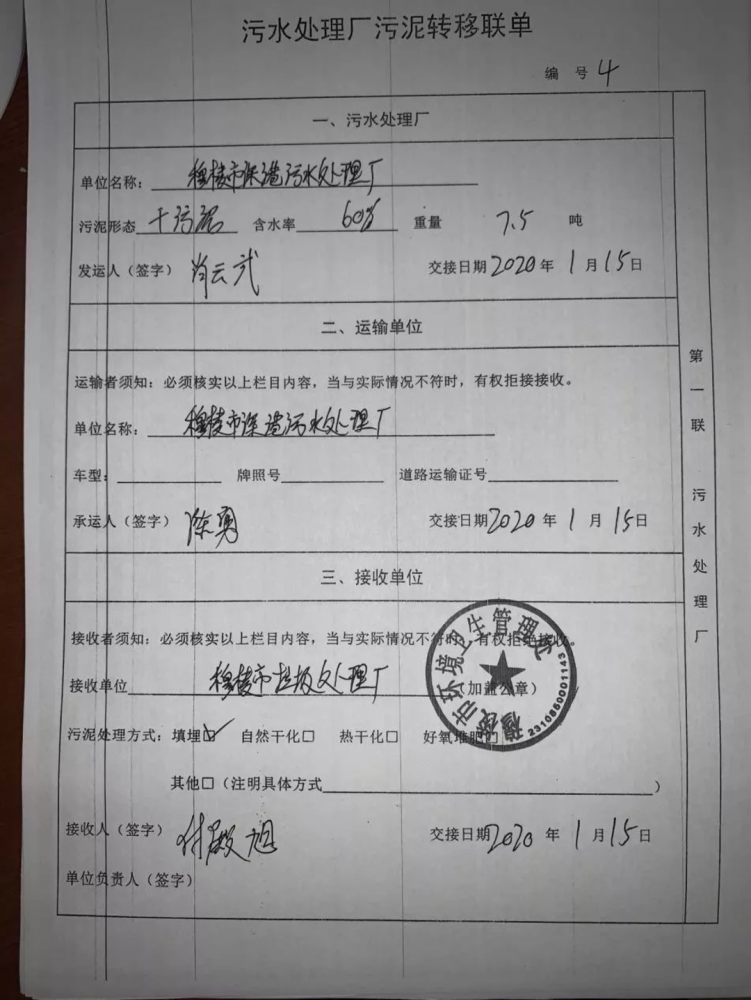 污水处理厂污泥转移联单
编 号 4
一、污水处理厂
单位名称：穆棱市深港污水处理厂
污泥形态 干污泥 含水率 60% 重量 7.5 吨
发运人（签字） 肖云武 交接日期 2020 年 1 月 15 日
二、运输单位
运输者须知：必须核实以上栏目内容，当与实际情况不符时，有权拒接接收。
单位名称：穆棱市深港污水处理厂
车型： 牌照号 道路运输证号
承运人（签字） 陈勇 交接日期 2020 年 1 月 15 日
三、接收单位
接收者须知：必须核实以上栏目内容，当与实际情况不符时，有权拒绝接收。
接收单位 穆棱市垃圾处理厂 （加盖公章）
污泥处理方式：填埋☑ 自然干化□ 热干化□ 好氧堆肥□
其他□（注明具体方式 ）
接收人（签字） 付殿旭 交接日期 2020 年 1 月 15 日
单位负责人（签字）
第一联 污水处理厂
穆棱市环境卫生管理